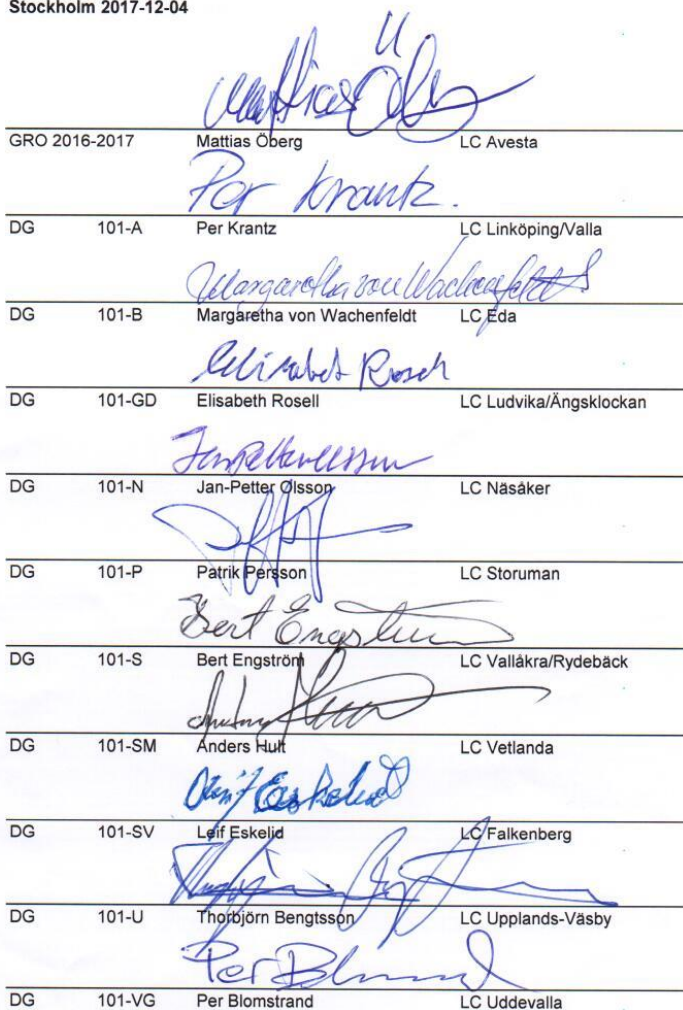 Stockholm 2017-12-04
Mattias Öberg
GRO 2016-2017 Mattias Öberg LC Avesta
Per Krantz.
DG 101-A Per Krantz LC Linköping/Valla
Margaretha von Wachenfeldt
DG 101-B Margaretha von Wachenfeldt LC Eda
Elisabet Rosell
DG 101-GD Elisabeth Rosell LC Ludvika/Ängsklockan
Jan-Petter Olsson
DG 101-N Jan-Petter Olsson LC Näsåker
DG 101-P Patrik Persson LC Storuman
Bert Engström
DG 101-S Bert Engström LC Vallåkra/Rydebäck
DG 101-SM Anders Hult LC Vetlanda
Leif Eskelid
DG 101-SV Leif Eskelid LC Falkenberg
DG 101-U Thorbjörn Bengtsson LC Upplands-Väsby
Per
DG 101-VG Per Blomstrand LC Uddevalla